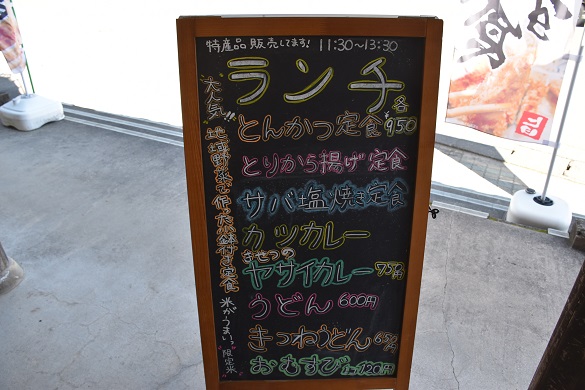 特産品 販売してます! 11:30～13:30
ランチ
とんかつ定食 各¥950
とりから揚げ定食
サバ塩焼き定食
カツカレー
きせつの
ヤサイカレー 750円
うどん 600円
きつねうどん 650円
おむすび 1ヶ120円
"大人気!!"
地場野菜で作った小鉢付き定食
米がうまい。
"限定米"